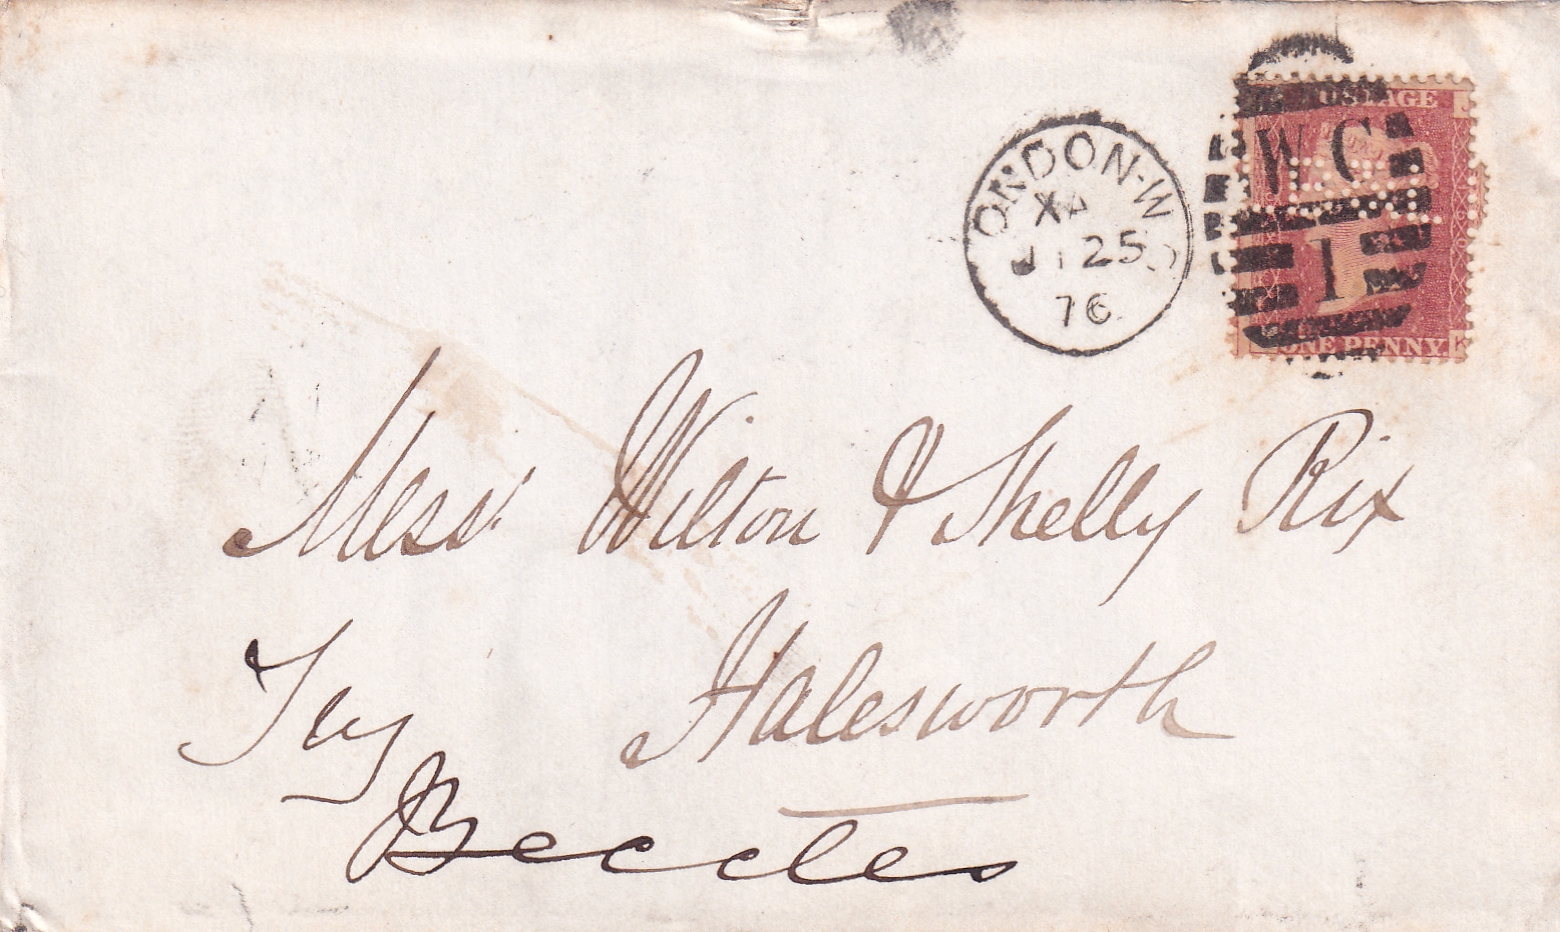 POSTAGE
W.C
1
ONE PENNY
LONDON-W.C
XA
25
76
Mess.rs Wilton & Shelly Rix
Halesworth
Try
Beccles